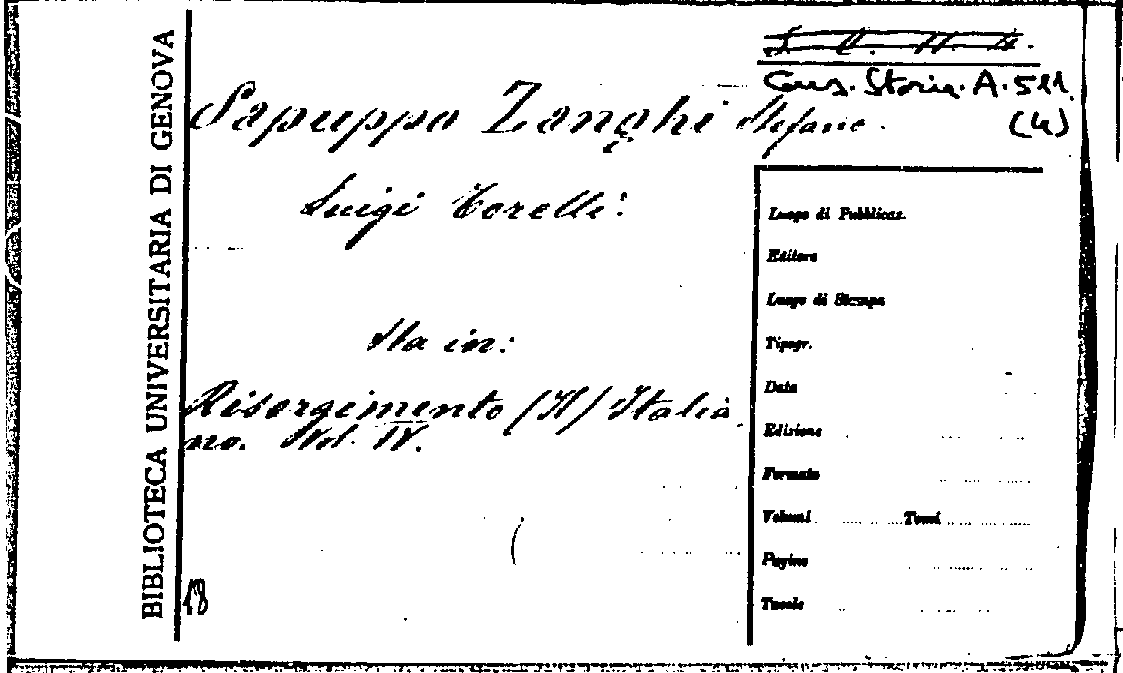 BIBLIOTECA UNIVERSITARIA DI GENOVA
Cons. Storia. A. 511
(4)
Sapuppo Zanghi Stefano.
Luigi Torelli.
Sta in:
Risorgimento (Il) Italia
no. Vol. IV.
18
Luogo di Pubblicaz.
Editore
Luogo di Stampa
Tipogr.
Data
Edizione
Formato
Volumi Tomi
Pagine
Tavole